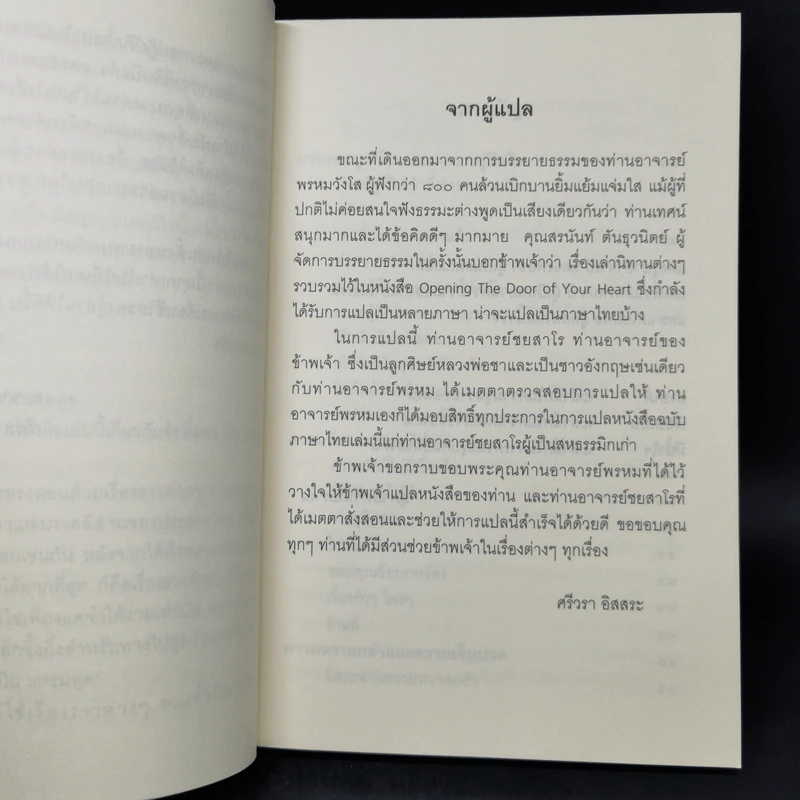 จากผู้แปล
ขณะที่เดินออกมาจากการบรรยายธรรมของท่านอาจารย์
พรหมวังโส ผู้ฟังกว่า ๘๐๐ คนล้วนเบิกบานยิ้มแย้มแจ่มใส แม้ผู้ที่
ปกติไม่ค่อยสนใจฟังธรรมะต่างพูดเป็นเสียงเดียวกันว่า ท่านเทศน์
สนุกมากและได้ข้อคิดดีๆ มากมาย คุณสรนันท์ ตันธุวนิตย์ ผู้
จัดการบรรยายธรรมในครั้งนั้นบอกข้าพเจ้าว่า เรื่องเล่านิทานต่างๆ
รวบรวมไว้ในหนังสือ Opening The Door of Your Heart ซึ่งกำลัง
ได้รับการแปลเป็นหลายภาษา น่าจะแปลเป็นภาษาไทยบ้าง
ในการแปลนี้ ท่านอาจารย์ชยสาโร ท่านอาจารย์ของ
ข้าพเจ้า ซึ่งเป็นลูกศิษย์หลวงพ่อชาและเป็นชาวอังกฤษเช่นเดียว
กับท่านอาจารย์พรหม ได้เมตตาตรวจสอบการแปลให้ ท่าน
อาจารย์พรหมเองก็ได้มอบสิทธิ์ทุกประการในการแปลหนังสือฉบับ
ภาษาไทยเล่มนี้แก่ท่านอาจารย์ชยสาโรผู้เป็นสหธรรมิกเก่า
ข้าพเจ้าขอกราบขอบพระคุณท่านอาจารย์พรหมที่ได้ไว้
วางใจให้ข้าพเจ้าแปลหนังสือของท่าน และท่านอาจารย์ชยสาโรที่
ได้เมตตาสั่งสอนและช่วยให้การแปลนี้สำเร็จได้ด้วยดี ขอขอบคุณ
ทุกๆ ท่านที่ได้มีส่วนช่วยข้าพเจ้าในเรื่องต่างๆ ทุกเรื่อง
ศรีวรา อิสสระ